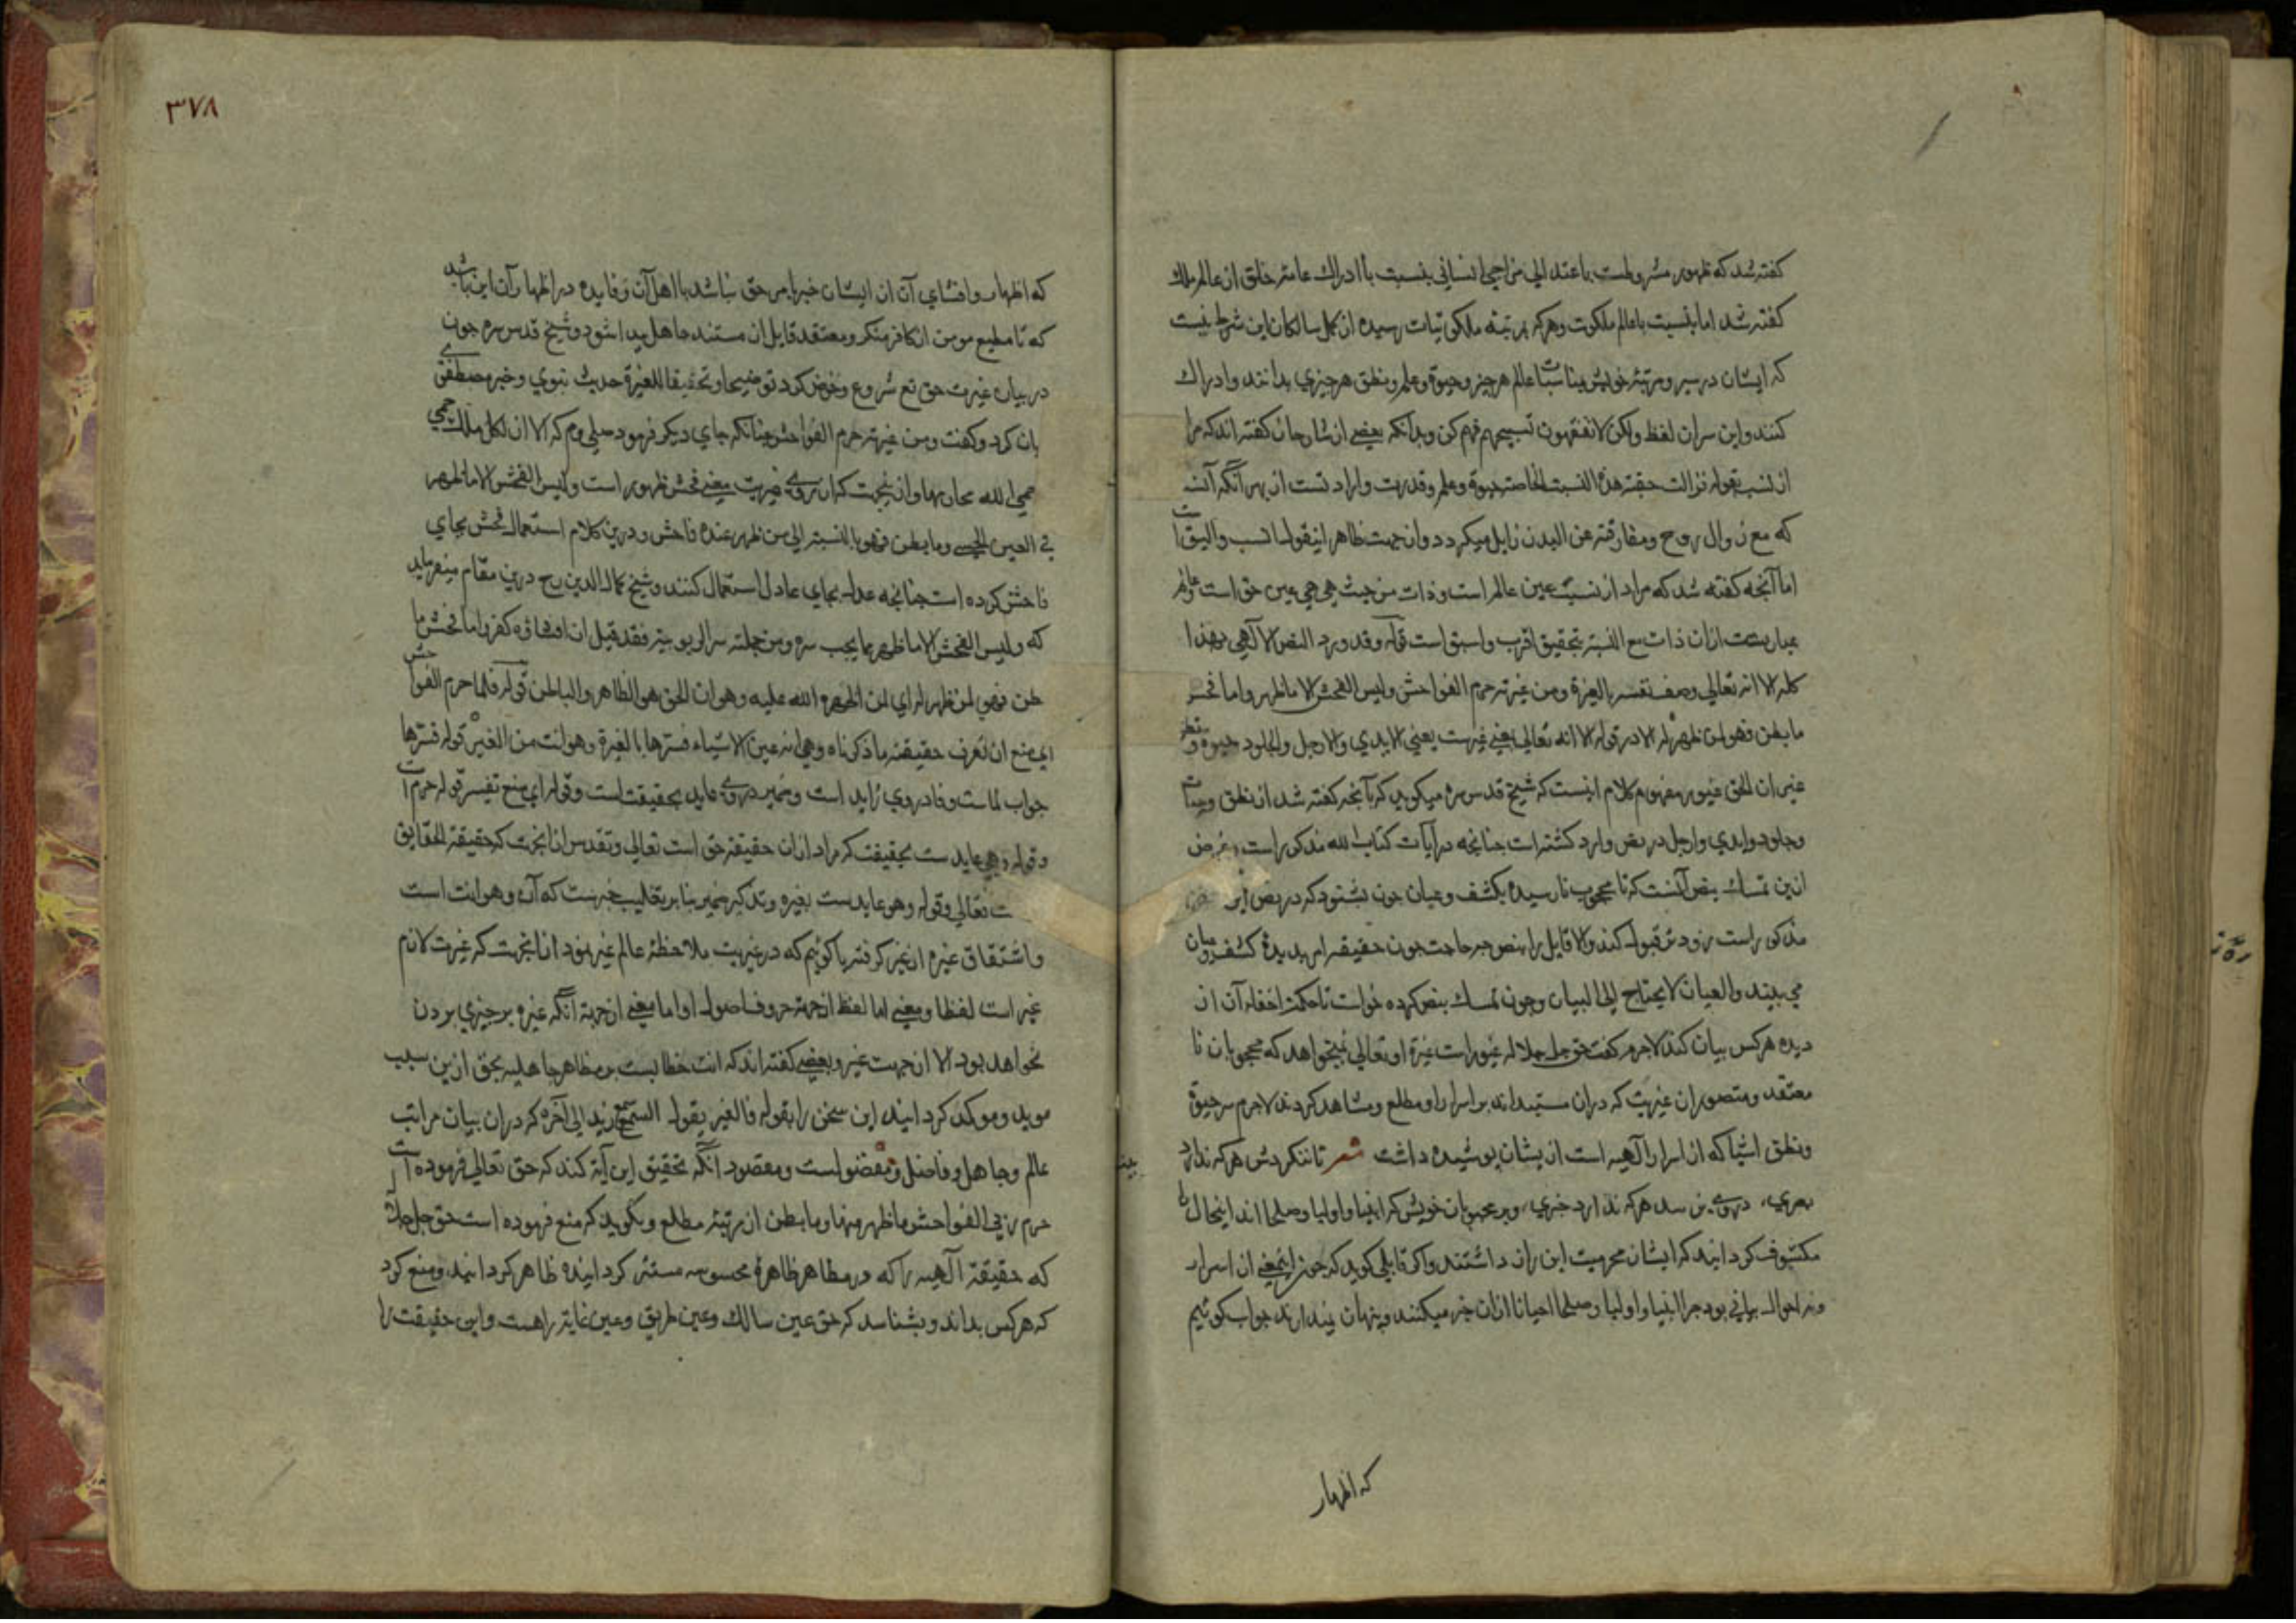 گفته شد که ظهور مشروطست باعتدالی مزاجی انسانی بنسبت با ادراك عامه خلق از عالم ملك
گفته شد اما بنسبت باعالم ملکوت وهرکه بمرتبه ملکوتیات رسیده از کمل سالکان این شرط نیست
که ایشان در سیر ومرتبه خویش عالم هرچیز وحیوة وعلم ونطق هرچیزی بدانند وادراك
کنند واین سر از لفظ ولکن لا تفقهون تسبیحهم فهم کن وبدانکه بعضی از شارحان گفته اند که مراد
از نسب بقوله فزالت حقه هذه النسب الخاصة حیوة وعلم وقدرت وارادتست از بهر آنکه آنست
که مع زوال روح ومفارقته عن البدن زایل میکردد وازجهت ظاهر اینقول انسب والیق است
اما آنچه گفته شد که مراد از نسب عین عالم است وذات من حیث هی هی عین حق است وعالم
عبارتست ازان ذات مع النسبة بتحقیق اقرب واسبق است قوله وقد ورد النص الالهی بهذا
كله الا انه تعالی وصف نفسه بالغیرة ومن غیرته حرم الفواحش ولیس الفحش الا ما ظهر واما فحش
ما بطن فهو لمن ظهر له الا در قوله الا انه تعالی بمعنی غیرت یعنی الایدی والارجل والجلود حیوة ونطق
غیر ان الحق غیور مفهوم کلام اینست که شیخ قدس سره میکوید که بآنچه گفته شد از نطق وحیات
وجلود وایدی وارجل در نص وارد کشته است چنانچه در آیات کتاب الله مذکور است وغرض
ازین تمسك بنص آنست که تا محجوب نارسیده بکشف وعیان چون بشنود که در نص این
مذکور است زودتر قبول کند والا قایل را بنص چه حاجت چون حقیقه امر بدیده کشف وعیان
می بیند والعیان لا یحتاج الی البیان وچون تمسك بنص کرده خواست تا حکمت اخفاء آن از
دیده هرکس بیان کند لاجرم گفت حق جل جلاله غیور است غیرة او تعالی نمیخواهد که محجوبان نا
معتقد ومتصوران غیریت که دران مستبدانند بر اسرار او مطلع ومشاهد کردند لاجرم سر حیوة
ونطق اشیا که از اسرار الهیه است ازیشان پوشیده داشت شعر تا ننگردش هرکه ندارد
بصری، در وی نرسد هرکه ندارد خبری، وبر محبوبان خویش که انبیا واولیا وصلحا اند اینحال را
مکشوف کردانید که ایشان محرمیت این راز داشتند واکر قایلی کوید که چون اینمعنی از اسرار
ونه احوال بیانی بود چرا انبیا واولیا وصلحا احیانا ازان خبر میکنند وپنهان نیندارند جواب کوئیم
که اظهار
۳۷۸
که اظهار وافشای آن از ایشان خبر بامر حق نباشد با اهل آن وفایده در اظهار آن این باشد
که تا مطیع مومن از کافر منکر ومعتقد قابل از مستند جاهل پیدا شود وشیخ قدس سره چون
در بیان غیرت حق تع شروع وخوض کرد توضیحا وتحقیقا للغیرة حدیث نبوی وخبر مصطفوی
بیان کرد وگفت ومن غیرته حرم الفواحش چنانکه جای دیکر فرمود صلی وم که الا ان لکل ملك حمی
حمی الله محارمها وازینجهت که از روی غیرت معنی فحش ظهور است ولیس الفحش الا ما ظهر
فی العین الحسی وما بطن فهو بالنسبة الی من ظهر عنده فاحش ودرین کلام استعمال فحش بجای
فاحش کرده است چنانچه عدل بجای عادل استعمال کنند وشیخ کمال الدین رح درین مقام میفرماید
که ولیس الفحش الا ما ظهر مما یجب ستره ومن جملته سر الربوبیة فقد قیل ان افشاؤه کفر واما فحش ما
بطن فهو لمن ظهر له ای لمن اظهره الله علیه وهو ان الحق هو الظاهر والباطن قوله فلما حرم الفواحش
ای منع ان تعرف حقیقة ما ذکرناه وهی انه عین الاشیاء فسترها بالغیرة وهو انت من الغیر قوله فسترها
جواب لماست وفا در وی زاید است وضمیر در وی عاید بحقیقت است وقوله ای منع تفسیر قوله حرم است
وقوله وهی عایدست بحقیقت که مراد ازان حقیقة حق است تعالی وتقدس ازانجهت که حقیقة الحقایق
ت تعالی وقوله وهو عایدست بغیره وتذکیر ضمیر بنا بر تغلیب خبرست که آن وهو انت است
واشتقاق غیره از غیر گرفته یا کوئیم که در غیریت ملاحظه عالم غیر بود ازانجهت که غیرت لازم
غیر است لفظا ومعنی اما لفظ ازجهة حروف اصول او اما معنی ازجهة آنکه غیره بر چیزی بردن
نخواهد بود الا ازجهت غیر وبعضی گفته اند که انت خطابست بر مظاهر جاهلیه بحق ازین سبب
موید وموکد کردانید این سخن را بقوله فالغیر یقول السمع زید الی آخره که دران بیان مراتب
عالم وجاهل وفاضل ومفضولست ومقصود آنکه تحقیق این آیه کند که حق تعالی فرموده است
حرم ربی الفواحش ما ظهر منها وما بطن از مرتبه مطلع وبکوید که منع فرموده است حق جل جلاله
که حقیقة الهیه را که در مظاهر ظاهره محسوسه مستتر کردانیده ظاهر کردانند ومنع کرد
که هرکس بداند وبشناسد که حق عین سالك وعین طریق وعین غایة راهست واین حقیقت را